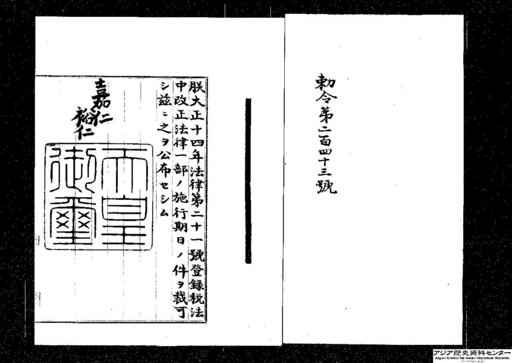 勅令第二百四十三號
朕大正十四年法律第二十一號登録税法
中改正法律一部ノ施行期日ノ件ヲ裁可
シ茲ニ之ヲ公布セシム
嘉仁
裕仁
天皇
御璽
アジア歴史資料センター
Japan Center for Asian Historical Records